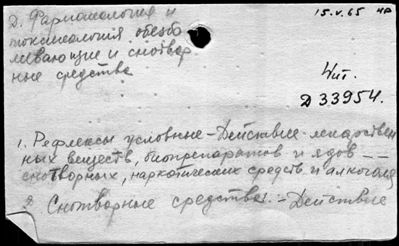 Д. Фармакология и
15.V.65 чр
токсикология обезбо
ливающие и снотвор
ные средства
Чит.
Д 33954.
1. Рефлексы условные - Действие лекарствен
ных веществ, биопрепаратов и ядов --
снотворных, наркотических средств и алкоголя
2 Снотворные средства. - Действие